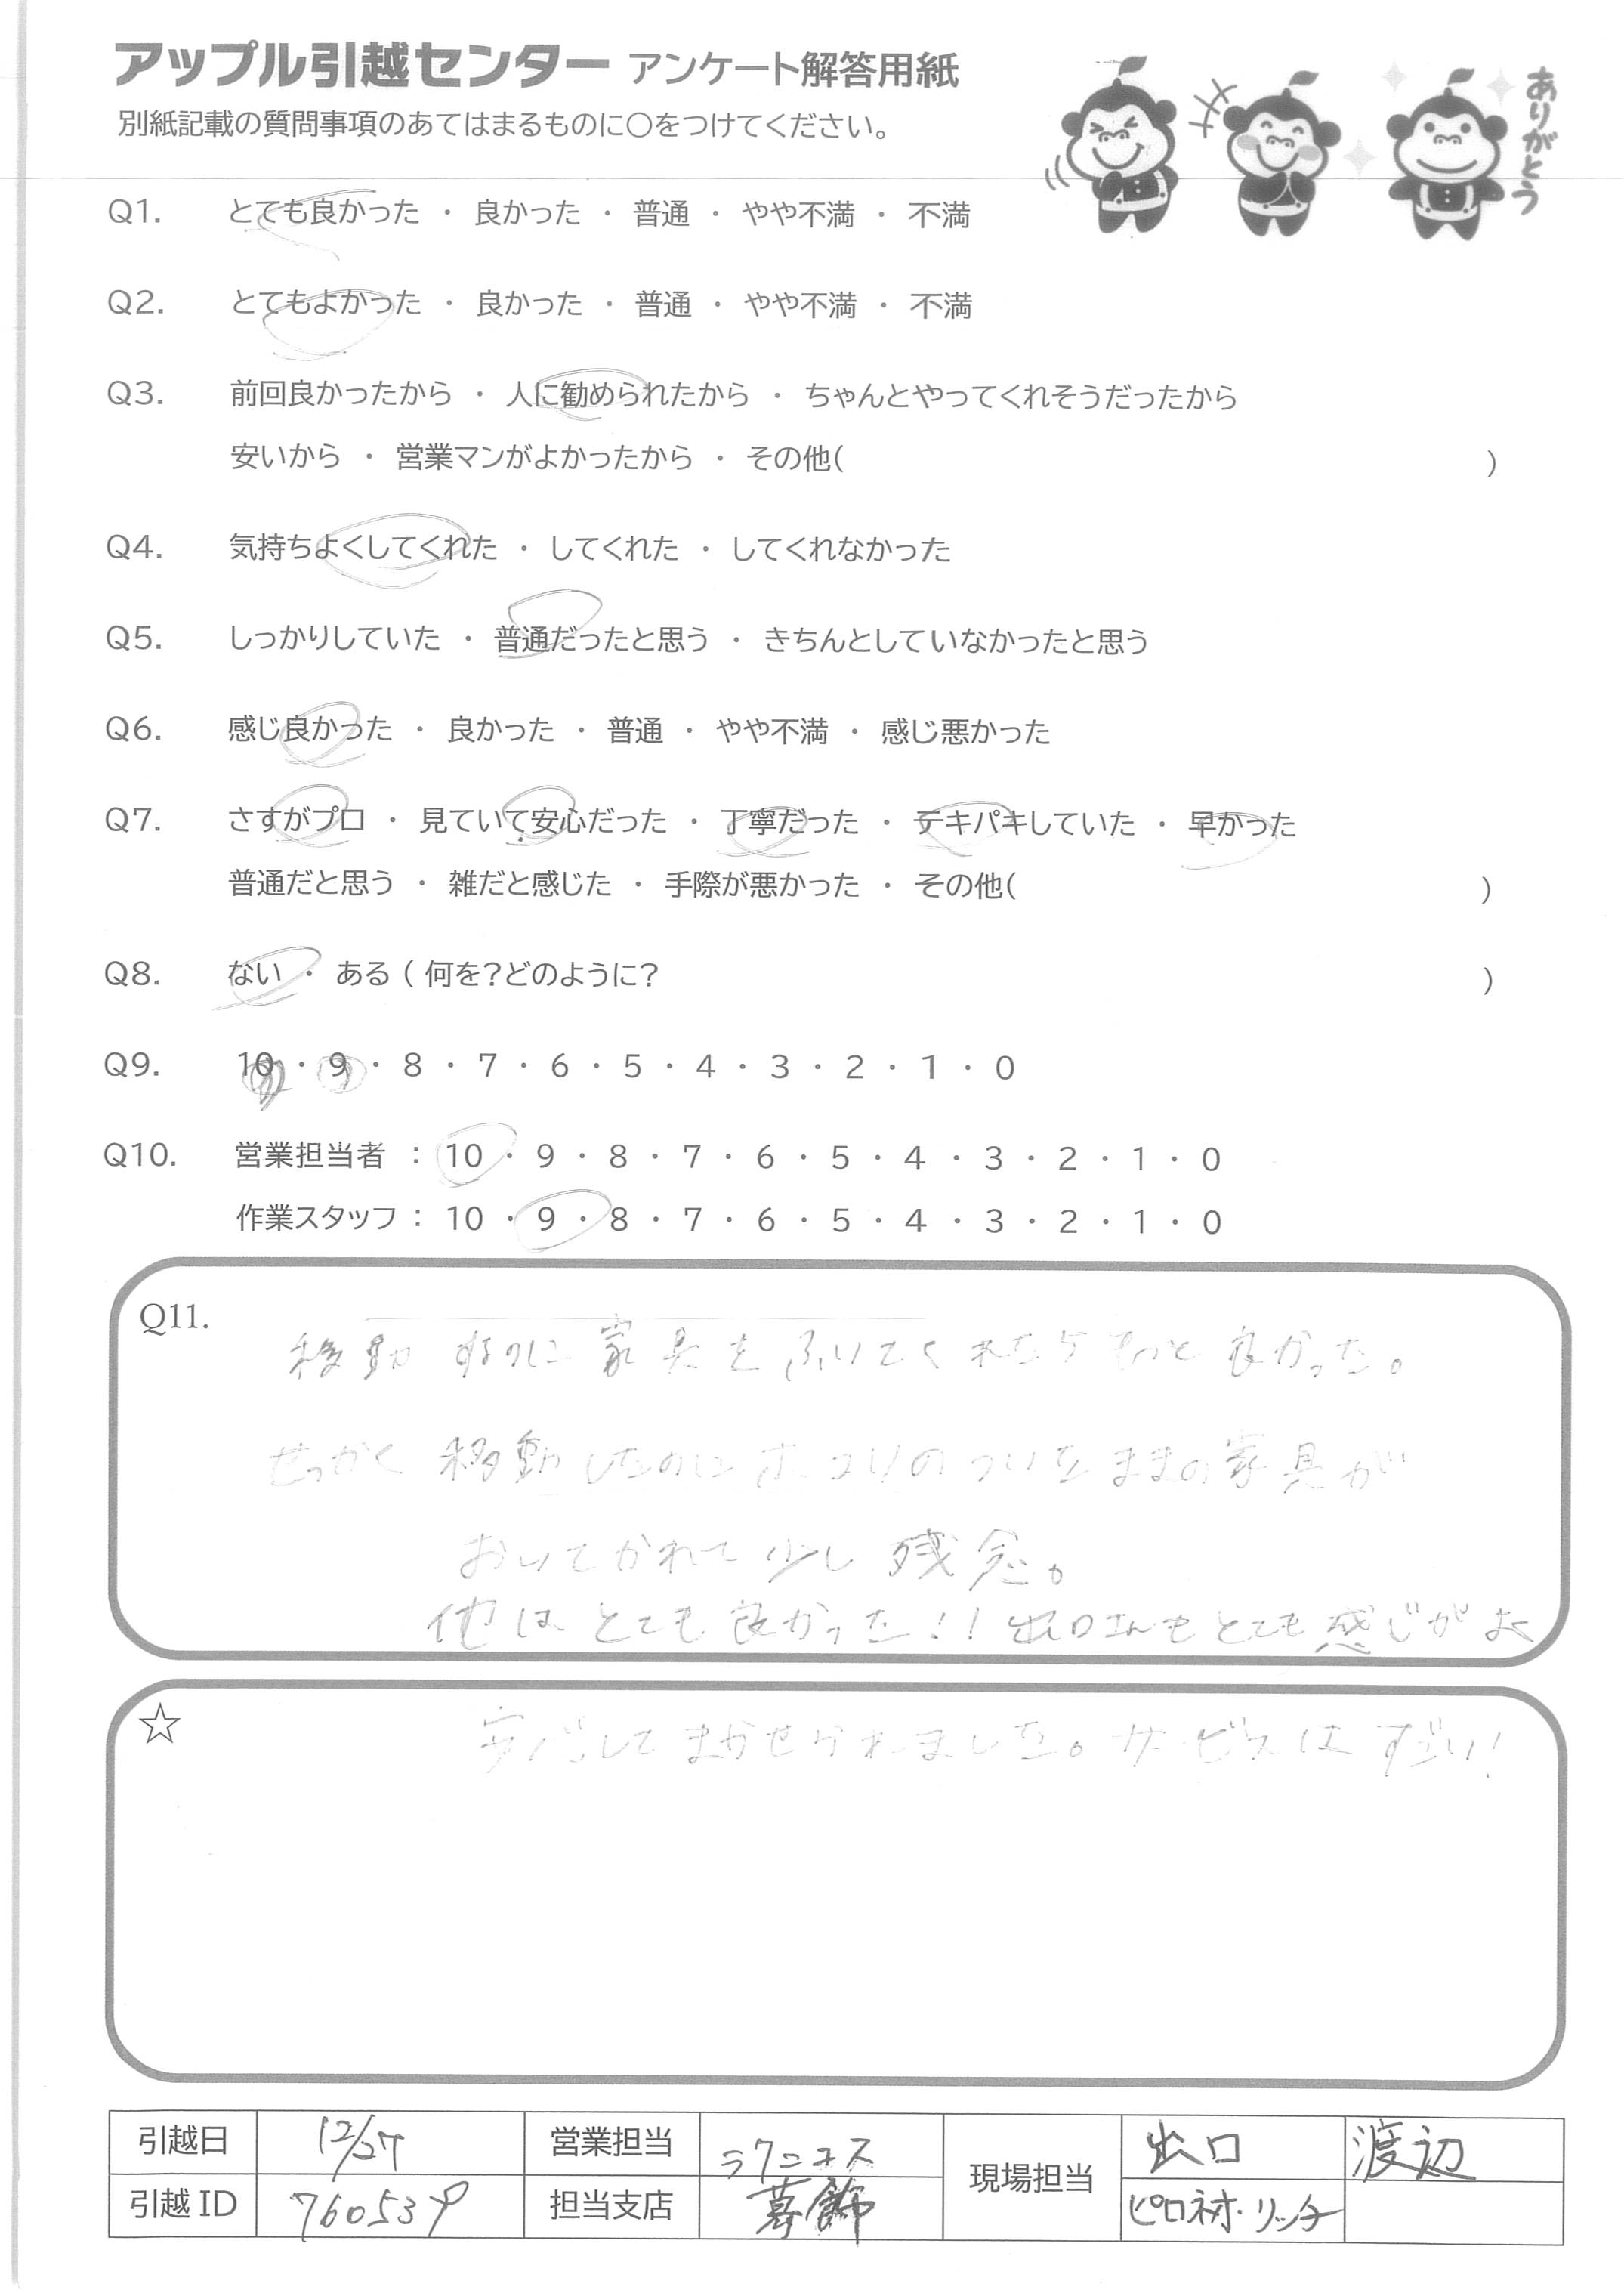 アップル引越センター アンケート解答用紙
別紙記載の質問事項のあてはまるものに○をつけてください。
ありがとう
Q1. とても良かった ・ 良かった ・ 普通 ・ やや不満 ・ 不満
Q2. とてもよかった ・ 良かった ・ 普通 ・ やや不満 ・ 不満
Q3. 前回良かったから ・ 人に勧められたから ・ ちゃんとやってくれそうだったから
安いから ・ 営業マンがよかったから ・ その他( )
Q4. 気持ちよくしてくれた ・ してくれた ・ してくれなかった
Q5. しっかりしていた ・ 普通だったと思う ・ きちんとしていなかったと思う
Q6. 感じ良かった ・ 良かった ・ 普通 ・ やや不満 ・ 感じ悪かった
Q7. さすがプロ ・ 見ていて安心だった ・ 丁寧だった ・ テキパキしていた ・ 早かった
普通だと思う ・ 雑だと感じた ・ 手際が悪かった ・ その他( )
Q8. ない ・ ある ( 何を?どのように? )
Q9. 10 ・ 9 ・ 8 ・ 7 ・ 6 ・ 5 ・ 4 ・ 3 ・ 2 ・ 1 ・ 0
Q10. 営業担当者 : 10 ・ 9 ・ 8 ・ 7 ・ 6 ・ 5 ・ 4 ・ 3 ・ 2 ・ 1 ・ 0
作業スタッフ : 10 ・ 9 ・ 8 ・ 7 ・ 6 ・ 5 ・ 4 ・ 3 ・ 2 ・ 1 ・ 0
Q11.
移動するのに家具をふいてくれたらもっと良かった。
せっかく移動したのにホコリのついたままの家具が
おいてかれて少し残念。
他はとても良かった!! 出口さんもとても感じがよく
☆
安心してまかせられました。サービスはすごい!
引越日 12/27 営業担当 現場担当 出口 渡辺
引越ID 760539 担当支店 葛飾 ピロネオ・リッチ